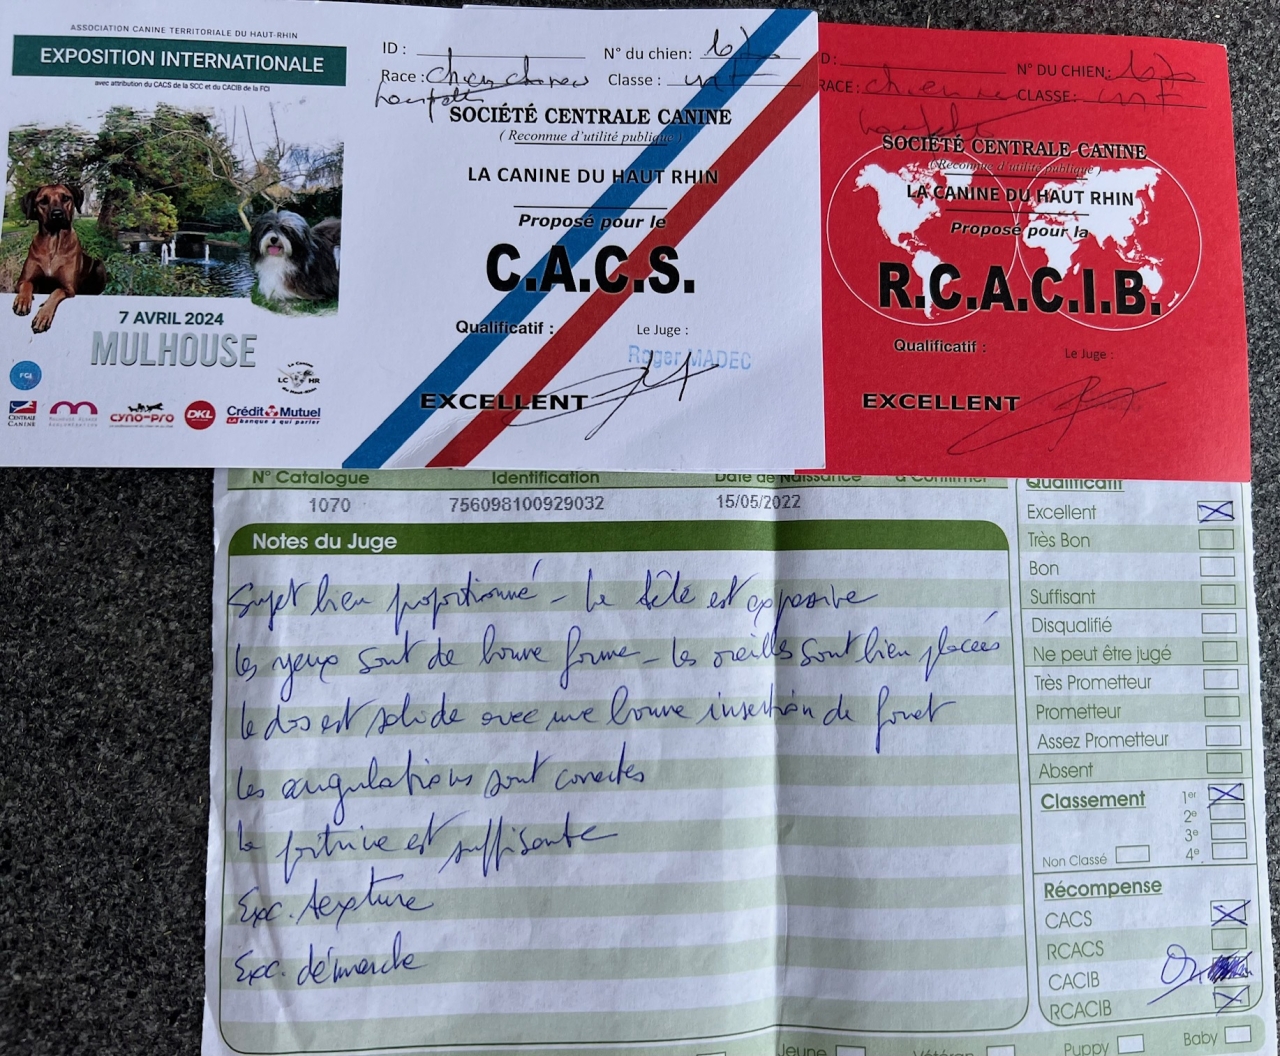 ASSOCIATION CANINE TERRITORIALE DU HAUT-RHIN
EXPOSITION INTERNATIONALE
avec attribution du CACS de la SCC et du CACIB de la FCI
7 AVRIL 2024
MULHOUSE
FCI
LC HR
CENTRALE CANINE
CYNO-PRO
DKL
Crédit Mutuel
LA banque à qui parler
ID :
N° du chien: 1070
Race : chien
Classe : INT F
SOCIÉTÉ CENTRALE CANINE
( Reconnue d'utilité publique )
LA CANINE DU HAUT RHIN
Proposé pour le
C.A.C.S.
Qualificatif :
Le Juge :
Roger MADEC
EXCELLENT
ID :
N° DU CHIEN: 1070
RACE : chien
CLASSE : INT F
SOCIÉTÉ CENTRALE CANINE
(Reconnue d'utilité publique )
LA CANINE DU HAUT RHIN
Proposé pour la
R.C.A.C.I.B.
Qualificatif :
Le Juge :
EXCELLENT
N° Catalogue
Identification
Date de Naissance
à Confirmer
1070
756098100929032
15/05/2022
Notes du Juge
Sujet bien proportionné - La tête est expressive
Les yeux sont de bonne forme - Les oreilles sont bien placées
Le dos est solide avec une bonne insertion de fouet
Les angulations sont correctes
La poitrine est suffisante
Exc. texture
Exc. démarche
Qualificatif
Excellent
Très Bon
Bon
Suffisant
Disqualifié
Ne peut être jugé
Très Prometteur
Prometteur
Assez Prometteur
Absent
Classement
1er
2e
3e
4e
Non Classé
Récompense
CACS
RCACS
CACIB
RCACIB
Jeune
Vétéran
Puppy
Baby